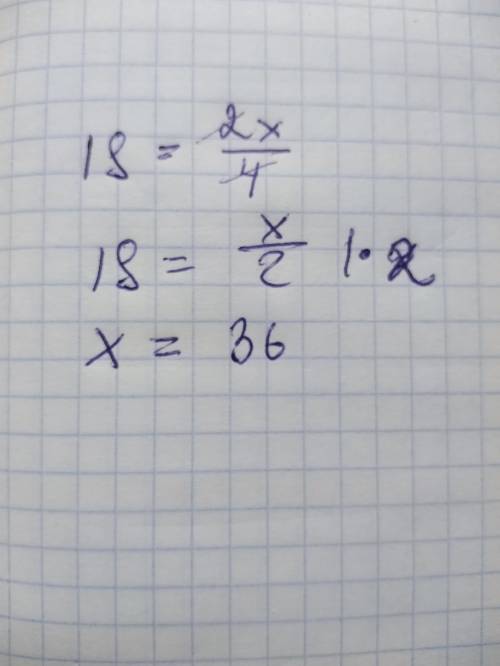 18 = 2x/4
18 = x/2 |·2
x = 36